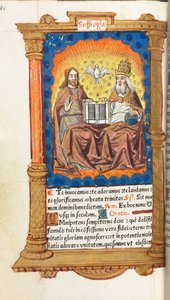 Te inuocamus: te adoramus: te laudamus:
te glorificamus: o beata trinitas. Sit no
men domini benedictum. Ex hoc nunc
Usq; in seculum. Oratio.
Omnipotens sempiterne deus: qui dedisti
famulis tuis in confessione vere fidei: eterne tri
nitatis gloriam agnoscere: et in potentia maie
statis adorare vnitatem. quesumus vt